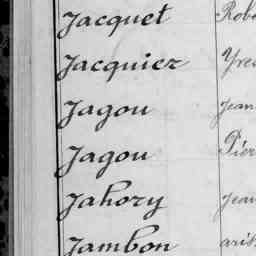 Jacquet Robe
Jacquier Yve
Jagou Jean
Jagou Pier
Jahory Jean
Jambon aris